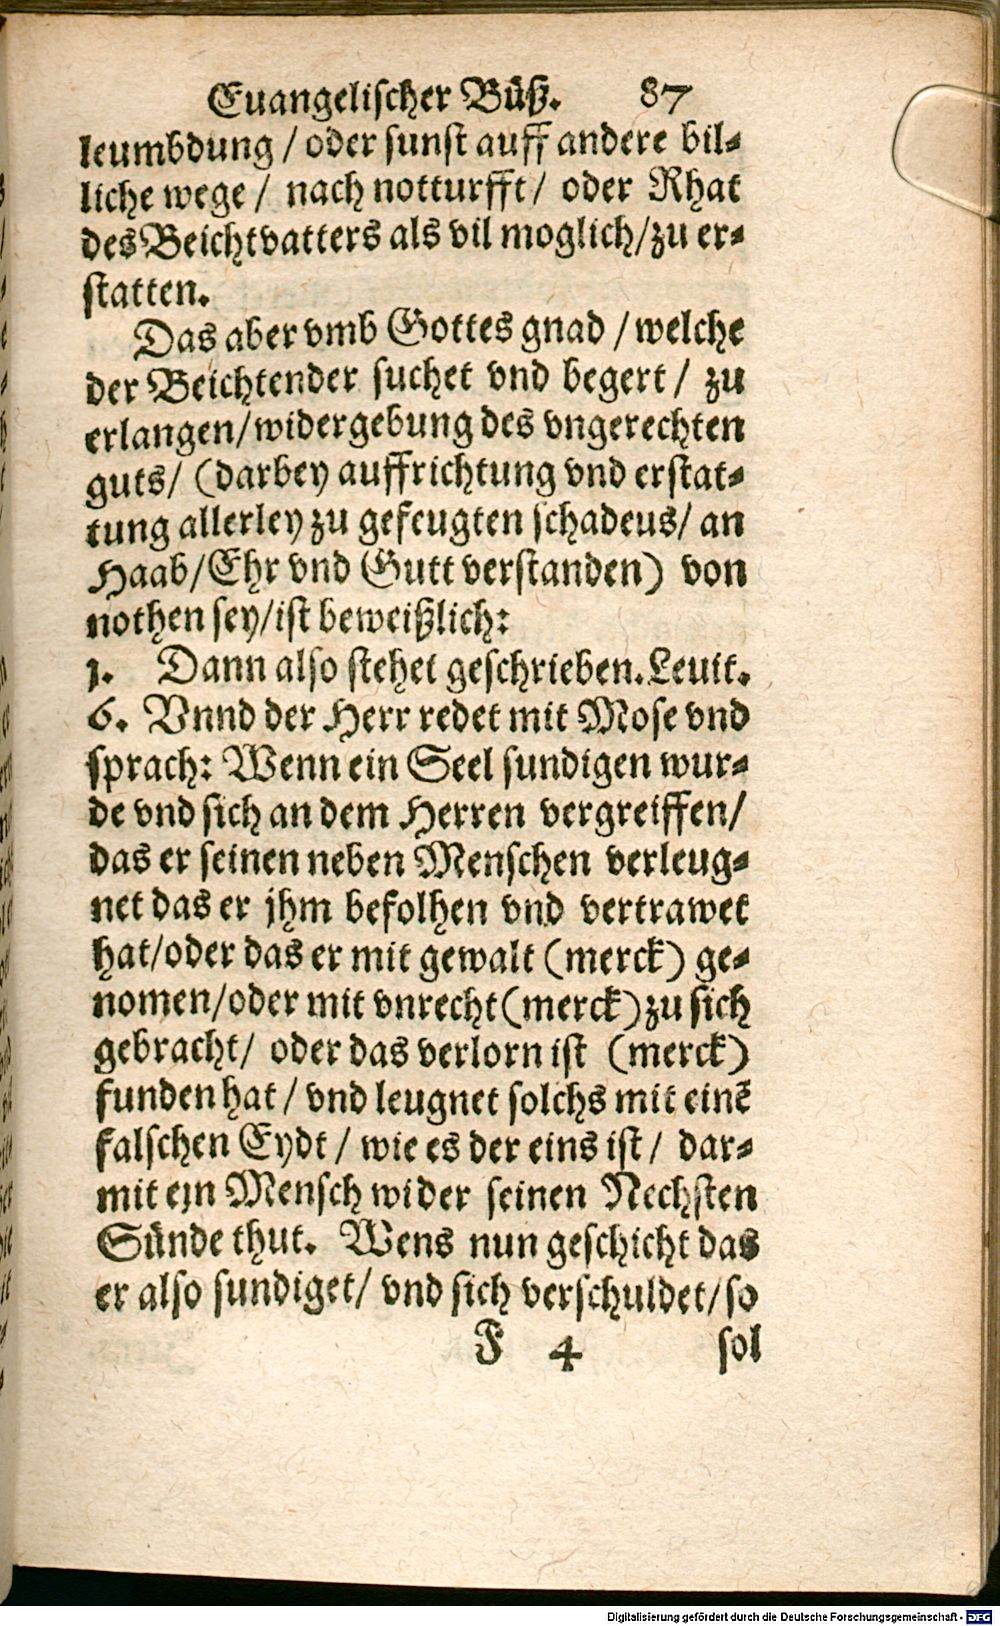 Euangelischer Büß. 87
leumbdung / oder sunst auff andere bil-
liche wege / nach notturfft / oder Rhat
des Beichtvatters als vil moglich / zu er-
statten.
Das aber vmb Gottes gnad / welche
der Beichtender suchet vnd begert / zu
erlangen / widergebung des vngerechten
guts / (darbey auffrichtung vnd erstat-
tung allerley zu gefeugten schadeus / an
Haab / Ehr vnd Gutt verstanden) von
nothen sey / ist beweißlich:
1. Dann also stehet geschrieben. Leuit.
6. Vnnd der Herr redet mit Mose vnd
sprach: Wenn ein Seel sundigen wur-
de vnd sich an dem Herren vergreiffen /
das er seinen neben Menschen verleug-
net das er jhm befolhen vnd vertrawet
hat / oder das er mit gewalt (merck) ge-
nomen / oder mit vnrecht (merck) zu sich
gebracht / oder das verlorn ist (merck)
funden hat / vnd leugnet solchs mit einē
falschen Eydt / wie es der eins ist / dar-
mit ein Mensch wider seinen Nechsten
Sünde thut. Wens nun geschicht das
er also sundiget / vnd sich verschuldet / so
F 4 sol
Digitalisierung gefördert durch die Deutsche Forschungsgemeinschaft - DFG